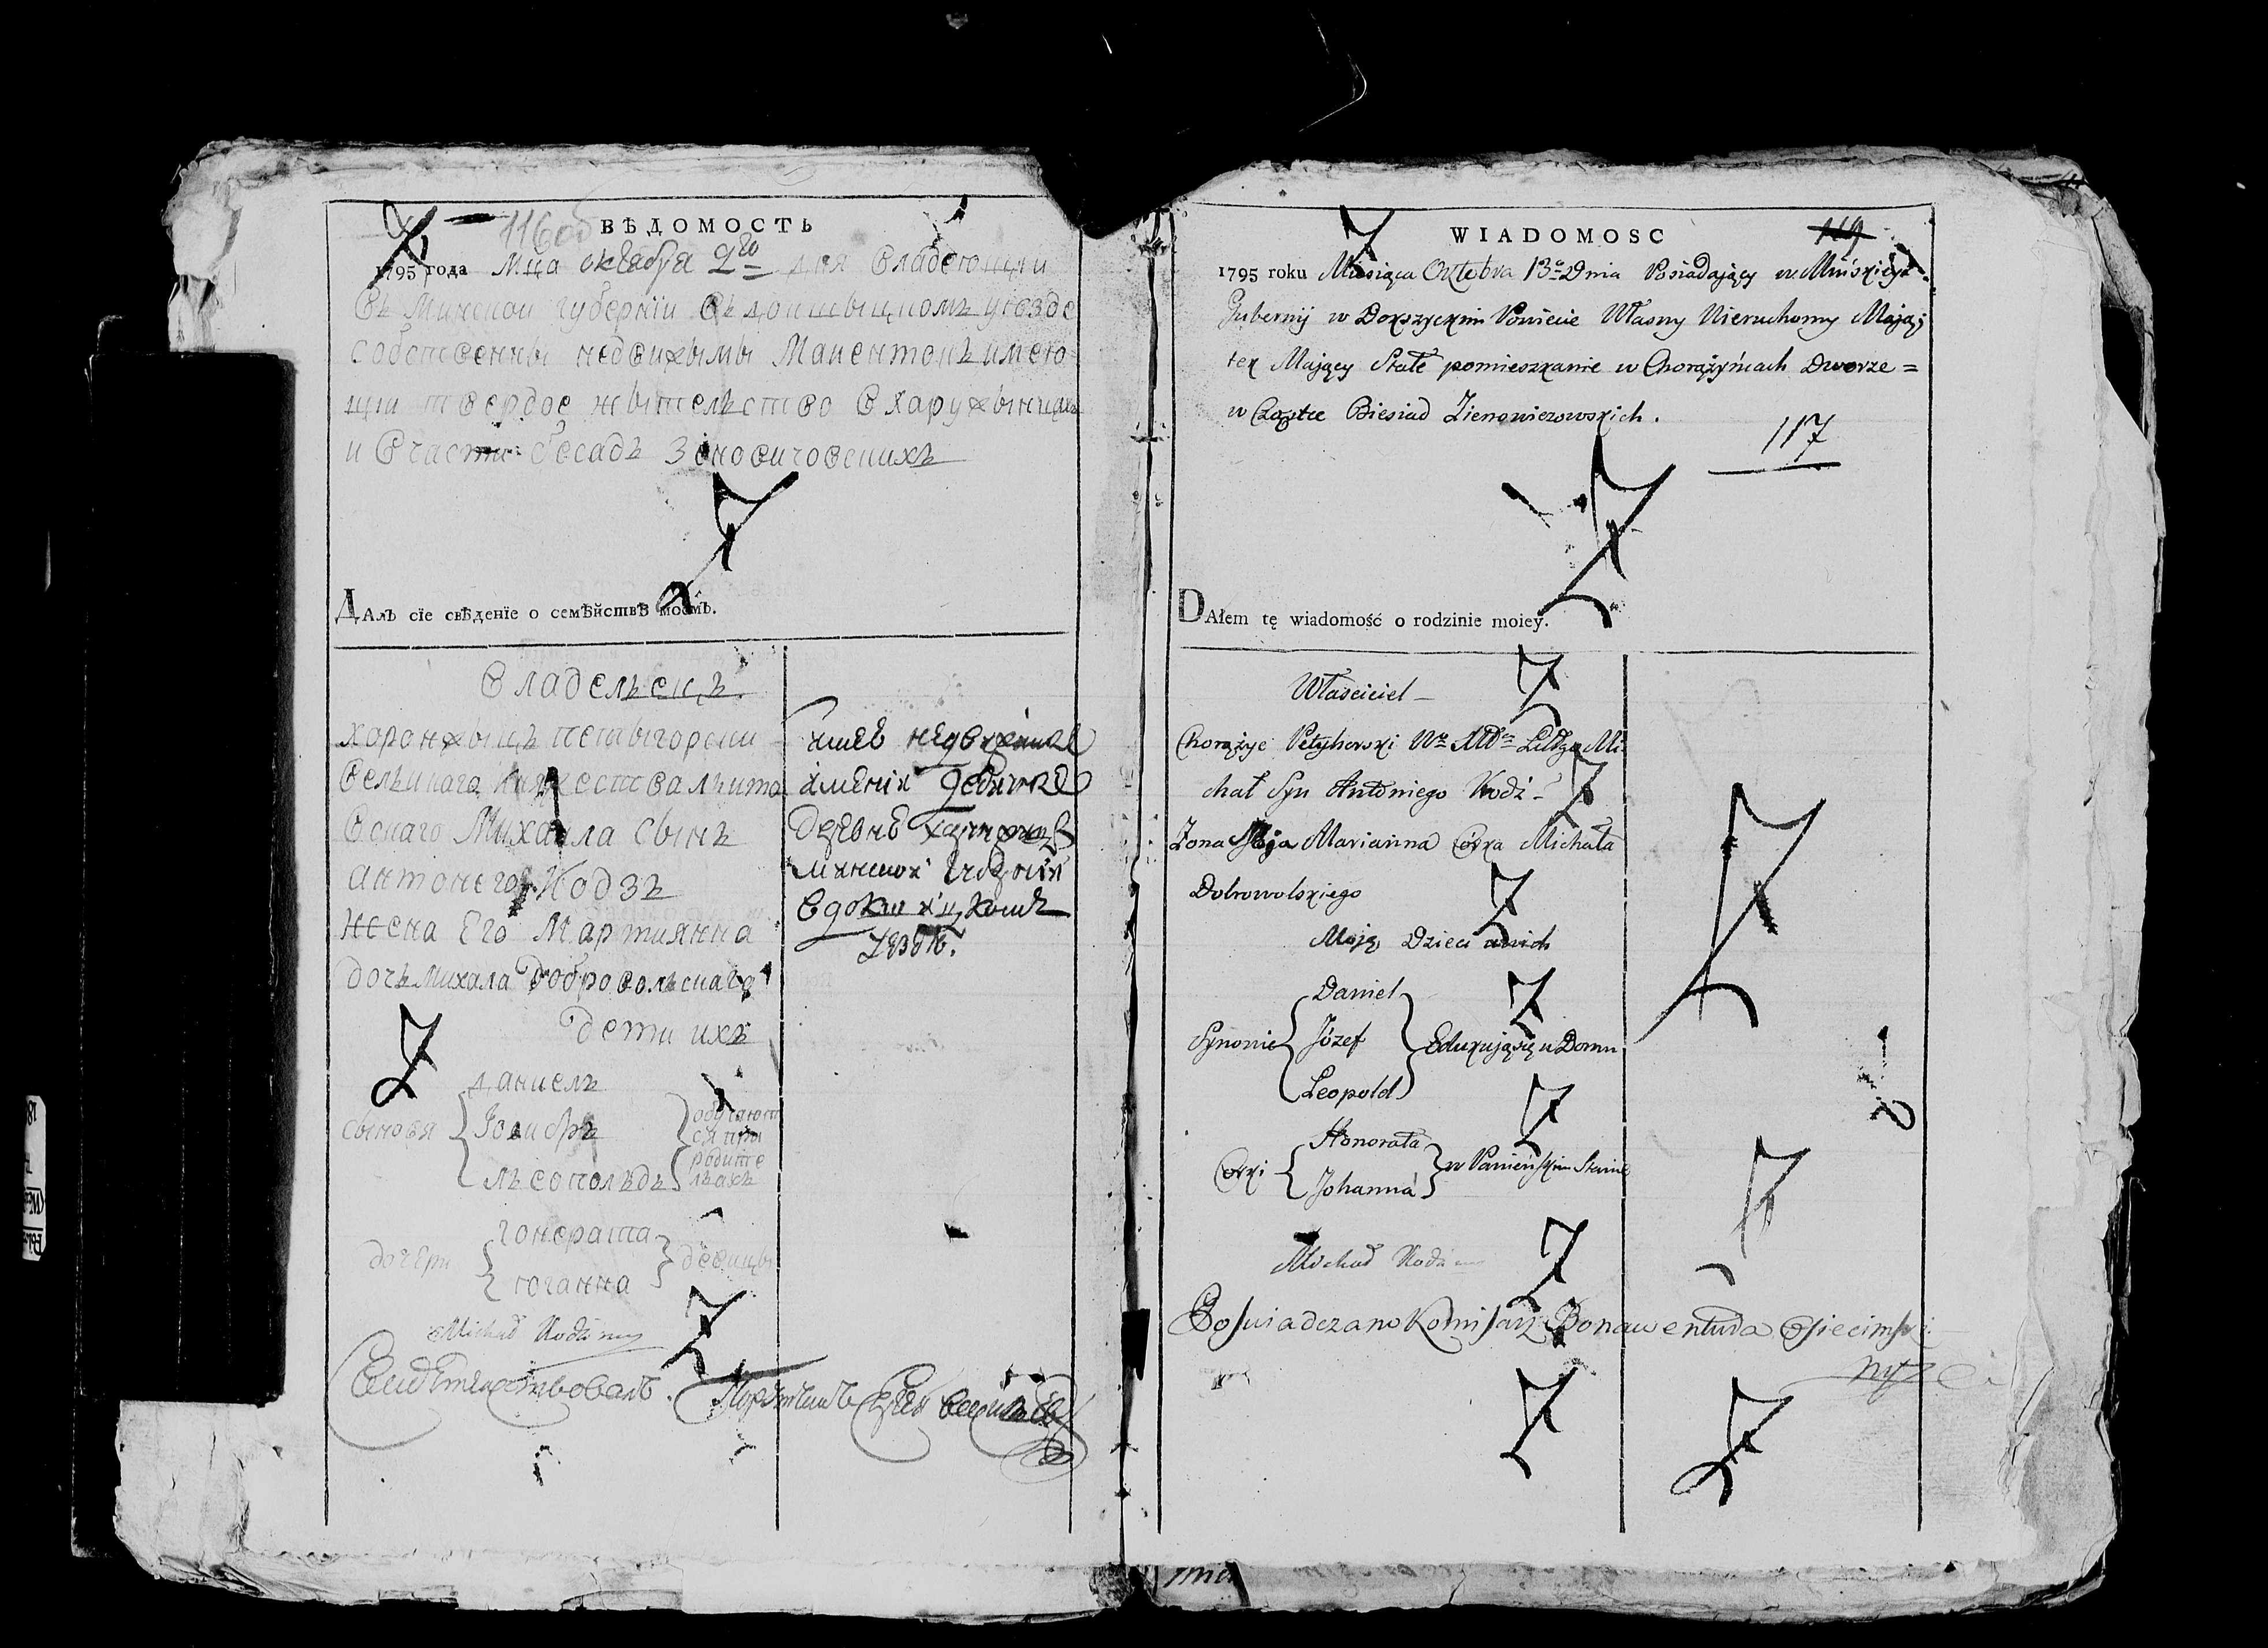 116об
ВѢДОМОСТЬ
1795 года Мца октября 2го дня владеющи
въ Минской губернїи въ докшыцкомъ уезде
собственны недвижымы Маентокъ имею
щи твердое жытельство в харужынцахъ
и в части беседъ Зеновичовскихъ
ДАлъ сїе свѣденїе о семѣйствѣ моемъ.
Владелецъ
харонжыцъ петыгорски
великаго княжества лито
вскаго Михаила сынъ
антонего Кодзъ
жена Его Мартиянна
дочъ михала Добровольскаго
дети ихъ
даниелъ
сыновя Іозифъ обучаются при родителяхъ
леопольдъ
гонората
дочери девицы
иоганна
имев недвижимое
имения
деревне
минской губернии
в докшицкомъ
уезде.
Michał Kodź mp
Свидетельствовалъ.
WIADOMOSC
1795 roku Miesiąca Oktobra 13o Dnia Posiadający w Mińskiey
Gubernij w Dokszyckim Powiecie Własny Nieruchomy Mają
tek Mający Stałe pomieszkanie w Chorążyńcach Dworze =
w Częstce Biesiad Zienowiczowskich.
117
DAłem tę wiadomość o rodzinie moiey.
Właściciel
Chorążyc Petyhorski Wo Xa Litgo Mi
chał Syn Antoniego Kodź
Żona Moja Marianna Córka Michała
Dobrowolskiego
Mają Dzieci
Daniel
Synowie Józef Edukują się w Domu
Leopold
Honorata
Córki w Panieńskim Stanie
Johanna
Michał Kodź
Poswiadczano Komisarz Bonawentura Osiecimski
mp